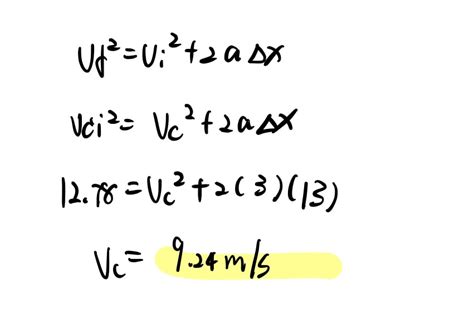 Vf² = Vi² + 2aΔx
Vci² = Vc² + 2aΔx
12.78 = Vc² + 2(3)(13)
Vc = 9.24 m/s